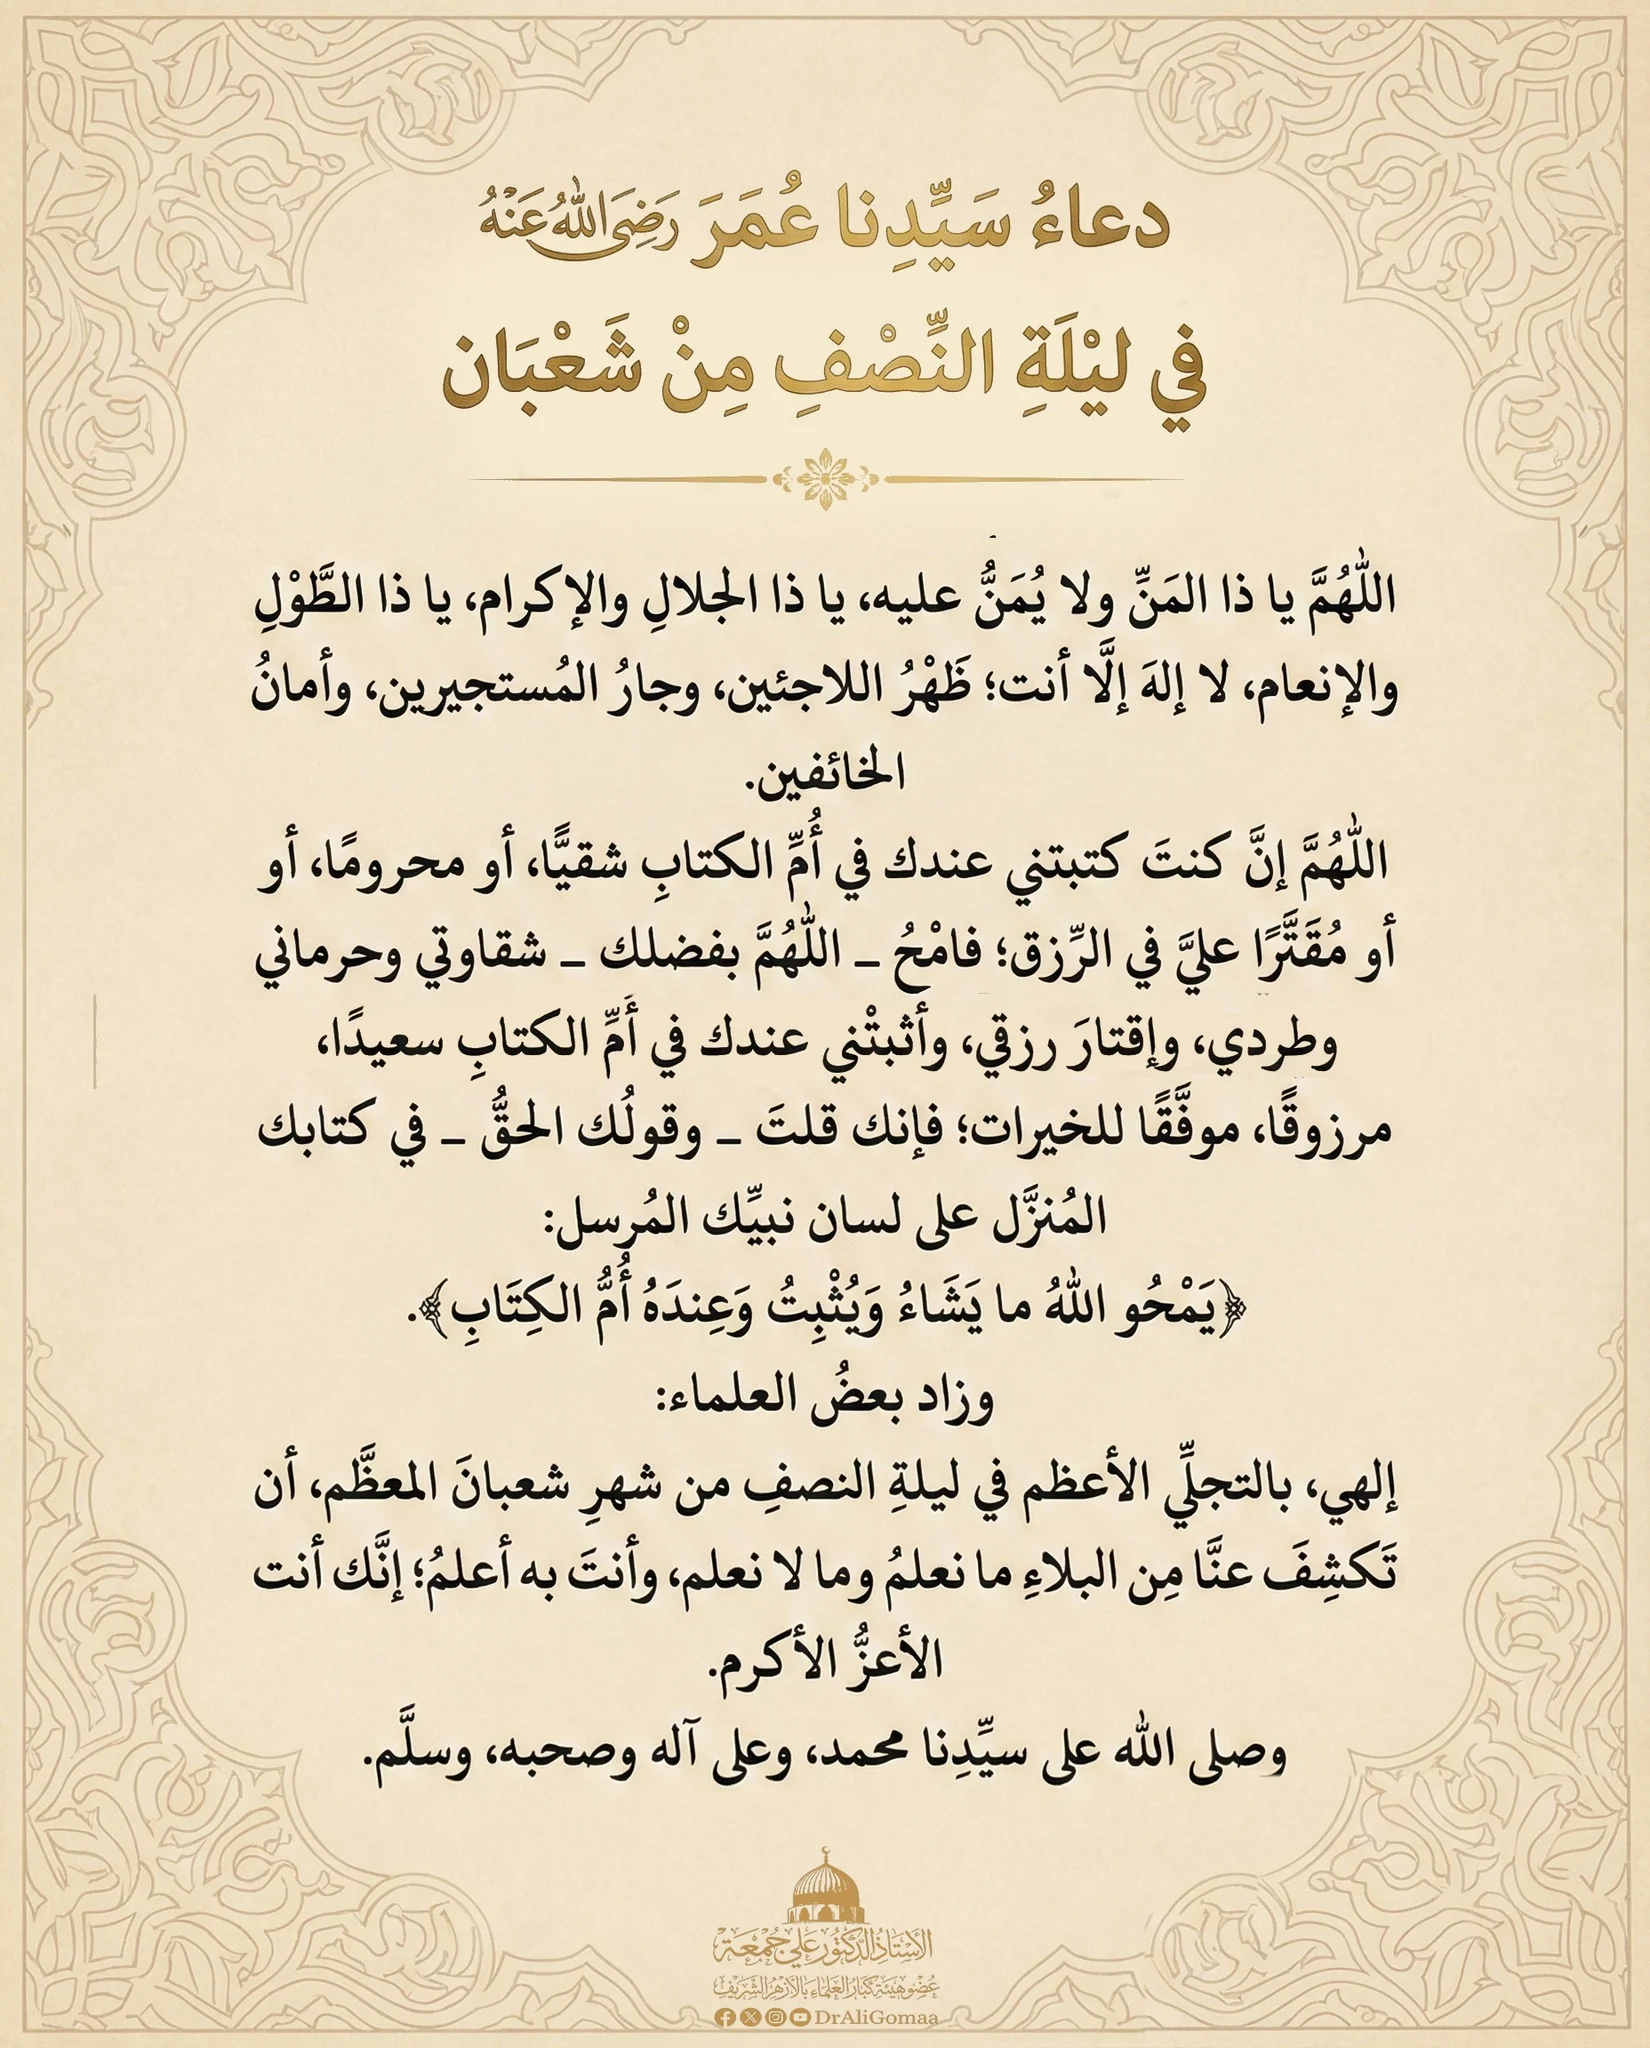 دعاءُ سَيِّدِنا عُمَرَ رَضِيَ اللهُ عَنْهُ
في ليْلَةِ النِّصْفِ مِنْ شَعْبَان
اللَّهُمَّ يا ذا المَنِّ ولا يُمَنُّ عليه، يا ذا الجلالِ والإكرام، يا ذا الطَّوْلِ
والإنعام، لا إلهَ إلَّا أنت؛ ظَهْرُ اللاجئين، وجارُ المُستجيرين، وأمانُ
الخائفين.
اللَّهُمَّ إنَّ كنتَ كتبتني عندك في أُمِّ الكتابِ شقيًّا، أو محرومًا، أو
أو مُقَتَّرًا عليَّ في الرِّزق؛ فامْحُ – اللَّهُمَّ بفضلك – شقاوتي وحرماني
وطردي، وإقتارَ رزقي، وأثبتْني عندك في أَمِّ الكتابِ سعيدًا،
مرزوقًا، موفَّقًا للخيرات؛ فإنك قلتَ – وقولُك الحقُّ – في كتابك
المُنزَّل على لسان نبيِّك المُرسل:
﴿يَمْحُو اللهُ ما يَشَاءُ وَيُثْبِتُ وَعِندَهُ أُمُّ الكِتَابِ﴾.
وزاد بعضُ العلماء:
إلهي، بالتجلِّي الأعظم في ليلةِ النصفِ من شهرِ شعبانَ المعظَّم، أن
تَكشِفَ عنَّا مِن البلاءِ ما نعلمُ وما لا نعلم، وأنتَ به أعلمُ؛ إنَّك أنت
الأعزُّ الأكرم.
وصلى الله على سيِّدِنا محمد، وعلى آله وصحبه، وسلَّم.
الأستاذ الدكتور علي جمعة
عضو هيئة كبار العلماء بالأزهر الشريف
DrAliGomaa